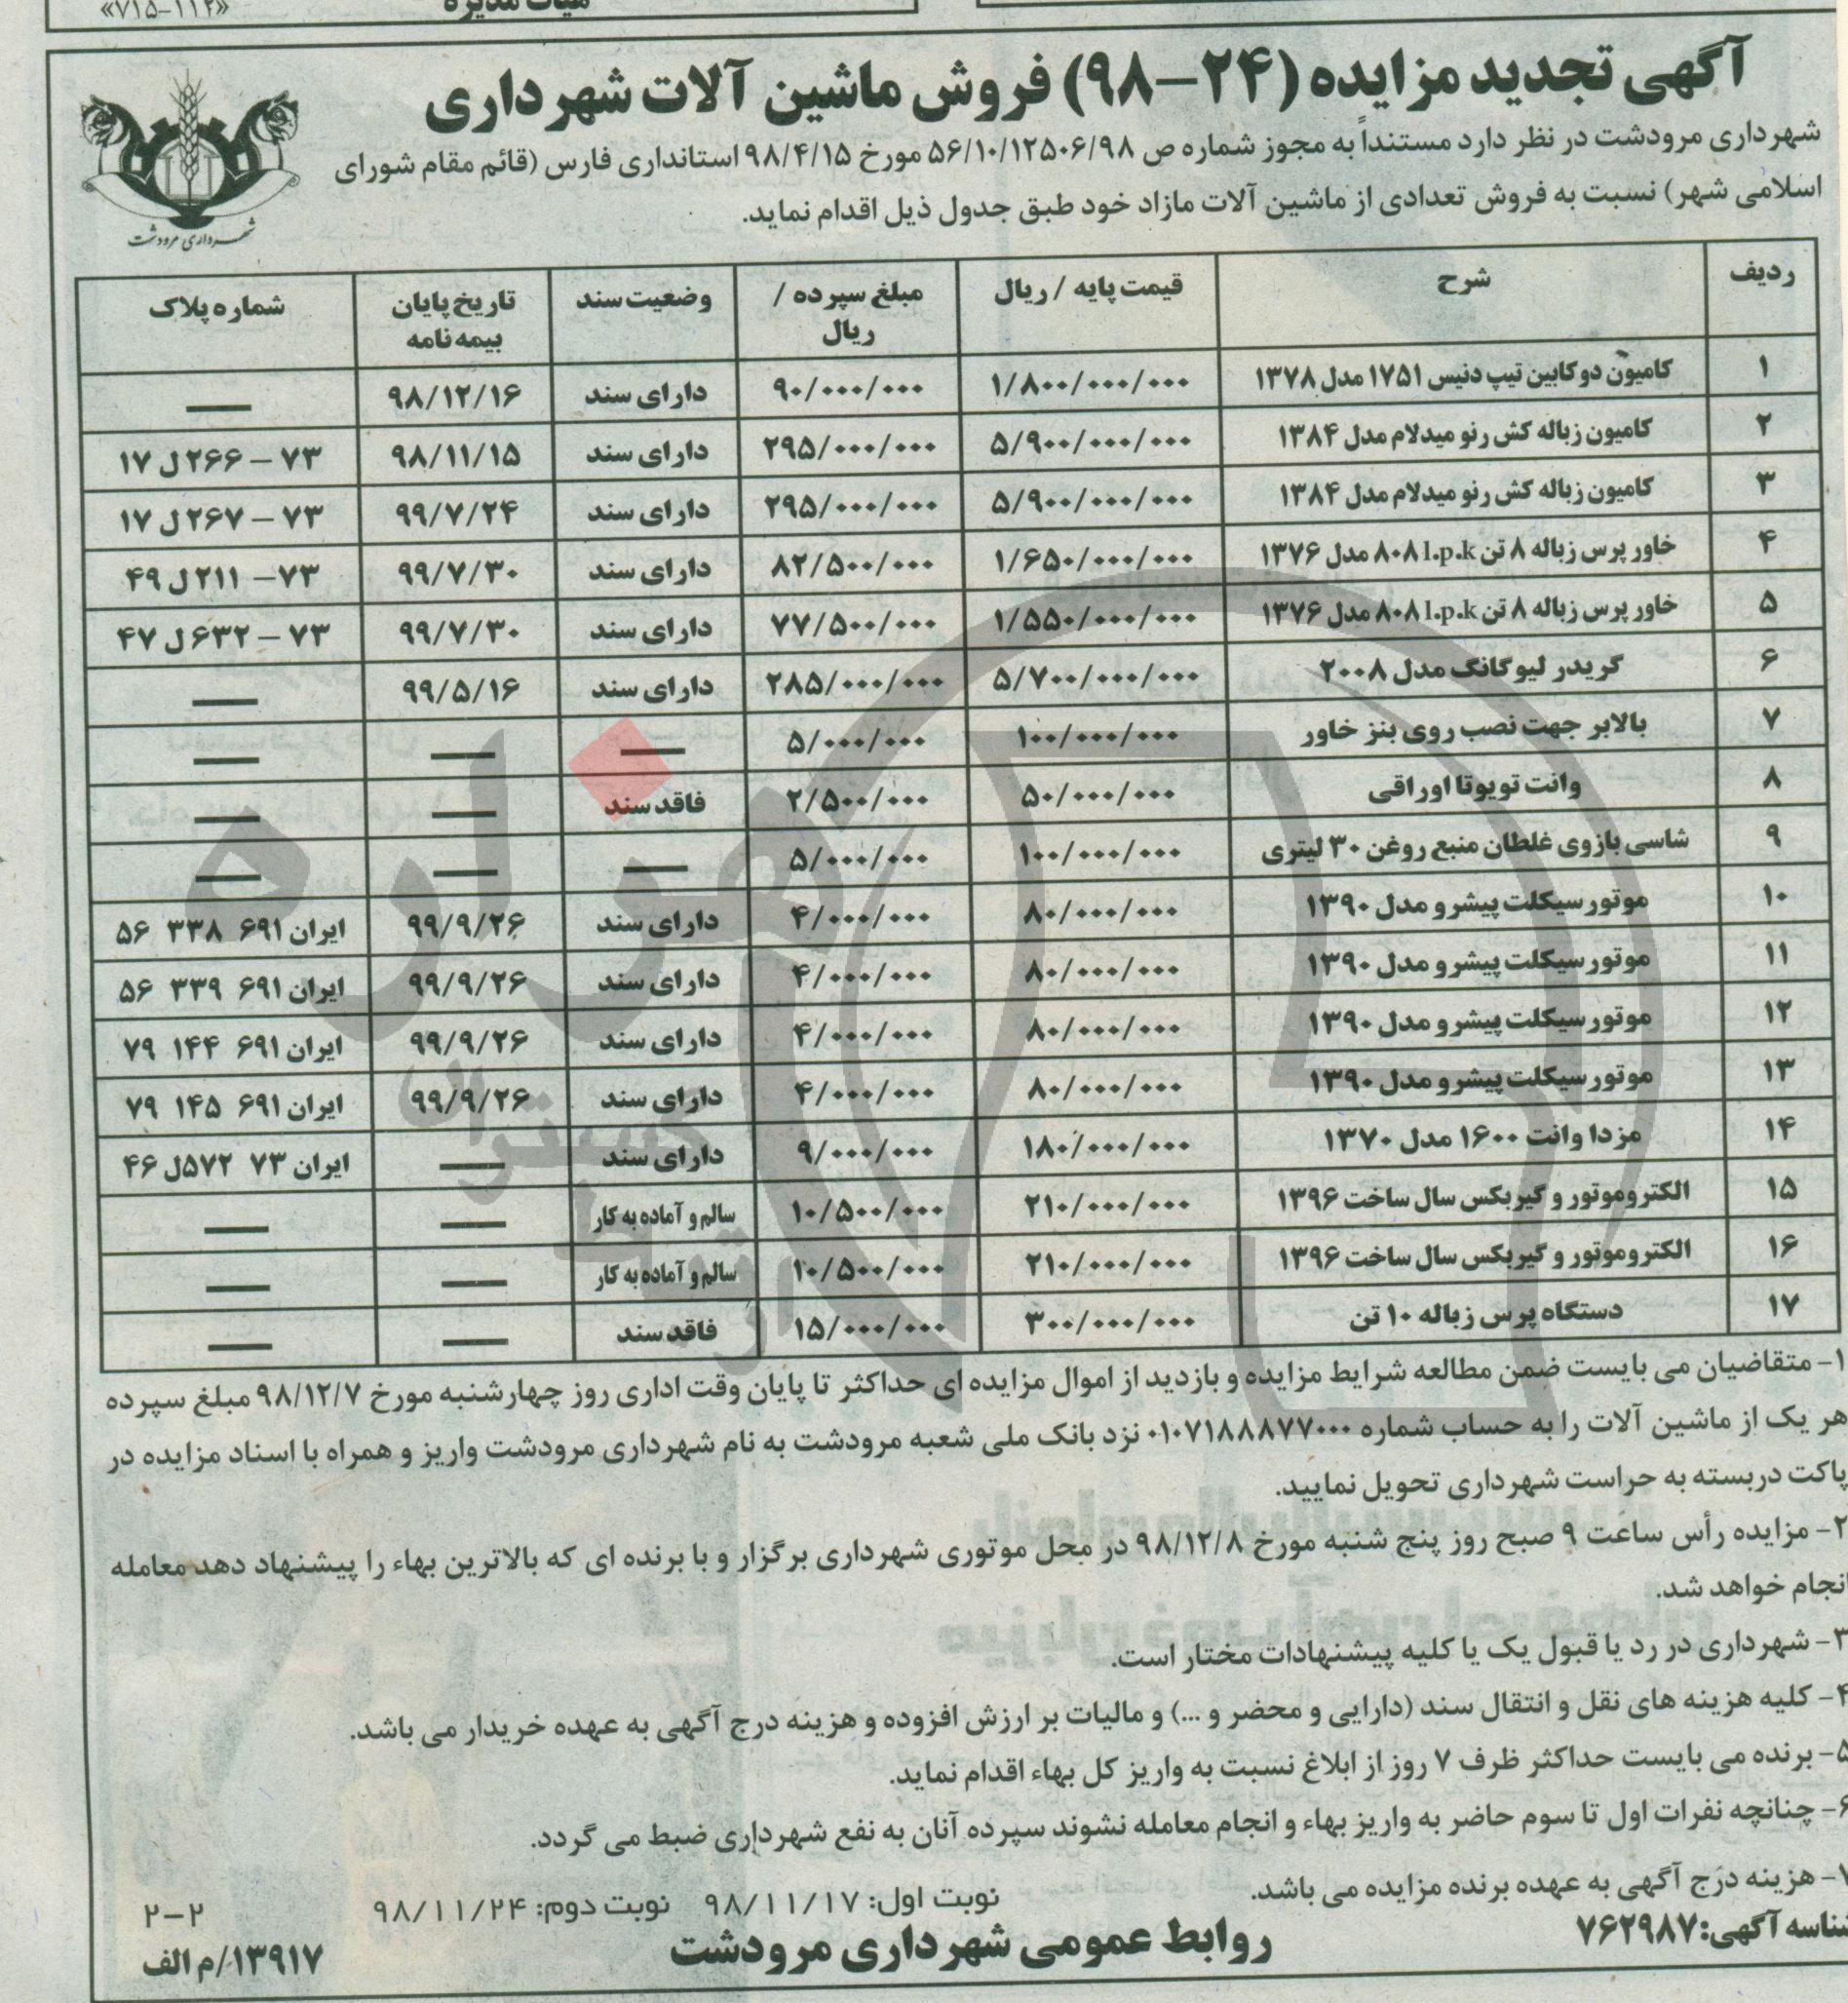 هیات مدیره
«۷۱۵-۱۱۲»
آگهی تجدید مزایده (۲۴-۹۸) فروش ماشین آلات شهرداری
شهرداری مرودشت در نظر دارد مستنداً به مجوز شماره ص ۵۶/۱۰/۱۲۵۰۶/۹۸ مورخ ۹۸/۴/۱۵ استانداری فارس (قائم مقام شورای
اسلامی شهر) نسبت به فروش تعدادی از ماشین آلات مازاد خود طبق جدول ذیل اقدام نماید.
شهرداری مرودشت
ردیف شرح قیمت پایه / ریال مبلغ سپرده / ریال وضعیت سند تاریخ پایان بیمه نامه شماره پلاک
۱ کامیون دو کابین تیپ دنیس ۱۷۵۱ مدل ۱۳۷۸ ۱/۸۰۰/۰۰۰/۰۰۰ ۹۰/۰۰۰/۰۰۰ دارای سند ۹۸/۱۲/۱۶ —
۲ کامیون زباله کش رنو میدلام مدل ۱۳۸۴ ۵/۹۰۰/۰۰۰/۰۰۰ ۲۹۵/۰۰۰/۰۰۰ دارای سند ۹۸/۱۱/۱۵ ۷۳ – ۲۶۶ ل ۱۷
۳ کامیون زباله کش رنو میدلام مدل ۱۳۸۴ ۵/۹۰۰/۰۰۰/۰۰۰ ۲۹۵/۰۰۰/۰۰۰ دارای سند ۹۹/۷/۲۴ ۷۳ – ۲۶۷ ل ۱۷
۴ خاور پرس زباله ۸ تن l.p.k ۸۰۸ مدل ۱۳۷۶ ۱/۶۵۰/۰۰۰/۰۰۰ ۸۲/۵۰۰/۰۰۰ دارای سند ۹۹/۷/۳۰ ۷۳ – ۲۱۱ ل ۴۹
۵ خاور پرس زباله ۸ تن l.p.k ۸۰۸ مدل ۱۳۷۶ ۱/۵۵۰/۰۰۰/۰۰۰ ۷۷/۵۰۰/۰۰۰ دارای سند ۹۹/۷/۳۰ ۷۳ – ۶۳۲ ل ۴۷
۶ گریدر لیوگانگ مدل ۲۰۰۸ ۵/۷۰۰/۰۰۰/۰۰۰ ۲۸۵/۰۰۰/۰۰۰ دارای سند ۹۹/۵/۱۶ —
۷ بالابر جهت نصب روی بنز خاور ۱۰۰/۰۰۰/۰۰۰ ۵/۰۰۰/۰۰۰ — — —
۸ وانت تویوتا اوراقی ۵۰/۰۰۰/۰۰۰ ۲/۵۰۰/۰۰۰ فاقد سند — —
۹ شاسی بازوی غلطان منبع روغن ۳۰ لیتری ۱۰۰/۰۰۰/۰۰۰ ۵/۰۰۰/۰۰۰ — — —
۱۰ موتورسیکلت پیشرو مدل ۱۳۹۰ ۸۰/۰۰۰/۰۰۰ ۴/۰۰۰/۰۰۰ دارای سند ۹۹/۹/۲۶ ایران ۶۹۱ ۳۳۸ ۵۶
۱۱ موتورسیکلت پیشرو مدل ۱۳۹۰ ۸۰/۰۰۰/۰۰۰ ۴/۰۰۰/۰۰۰ دارای سند ۹۹/۹/۲۶ ایران ۶۹۱ ۳۳۹ ۵۶
۱۲ موتورسیکلت پیشرو مدل ۱۳۹۰ ۸۰/۰۰۰/۰۰۰ ۴/۰۰۰/۰۰۰ دارای سند ۹۹/۹/۲۶ ایران ۶۹۱ ۱۴۴ ۷۹
۱۳ موتورسیکلت پیشرو مدل ۱۳۹۰ ۸۰/۰۰۰/۰۰۰ ۴/۰۰۰/۰۰۰ دارای سند ۹۹/۹/۲۶ ایران ۶۹۱ ۱۴۵ ۷۹
۱۴ مزدا وانت ۱۶۰۰ مدل ۱۳۷۰ ۱۸۰/۰۰۰/۰۰۰ ۹/۰۰۰/۰۰۰ دارای سند — ایران ۷۳ ۵۷۲ل ۴۶
۱۵ الکتروموتور و گیربکس سال ساخت ۱۳۹۶ ۲۱۰/۰۰۰/۰۰۰ ۱۰/۵۰۰/۰۰۰ سالم و آماده به کار — —
۱۶ الکتروموتور و گیربکس سال ساخت ۱۳۹۶ ۲۱۰/۰۰۰/۰۰۰ ۱۰/۵۰۰/۰۰۰ سالم و آماده به کار — —
۱۷ دستگاه پرس زباله ۱۰ تن ۳۰۰/۰۰۰/۰۰۰ ۱۵/۰۰۰/۰۰۰ فاقد سند — —
۱- متقاضیان می بایست ضمن مطالعه شرایط مزایده و بازدید از اموال مزایده ای حداکثر تا پایان وقت اداری روز چهارشنبه مورخ ۹۸/۱۲/۷ مبلغ سپرده
هر یک از ماشین آلات را به حساب شماره ۰۱۰۷۱۸۸۸۷۷۰۰۰ نزد بانک ملی شعبه مرودشت به نام شهرداری مرودشت واریز و همراه با اسناد مزایده در
پاکت دربسته به حراست شهرداری تحویل نمایید.
۲- مزایده رأس ساعت ۹ صبح روز پنج شنبه مورخ ۹۸/۱۲/۸ در محل موتوری شهرداری برگزار و با برنده ای که بالاترین بهاء را پیشنهاد دهد معامله
انجام خواهد شد.
۳- شهرداری در رد یا قبول یک یا کلیه پیشنهادات مختار است.
۴- کلیه هزینه های نقل و انتقال سند (دارایی و محضر و ...) و مالیات بر ارزش افزوده و هزینه درج آگهی به عهده خریدار می باشد.
۵- برنده می بایست حداکثر ظرف ۷ روز از ابلاغ نسبت به واریز کل بهاء اقدام نماید.
۶- چنانچه نفرات اول تا سوم حاضر به واریز بهاء و انجام معامله نشوند سپرده آنان به نفع شهرداری ضبط می گردد.
۷- هزینه درج آگهی به عهده برنده مزایده می باشد.
نوبت اول: ۹۸/۱۱/۱۷ نوبت دوم: ۹۸/۱۱/۲۴
۲-۲
شناسه آگهی: ۷۶۲۹۸۷
روابط عمومی شهرداری مرودشت
۱۳۹۱۷/م الف